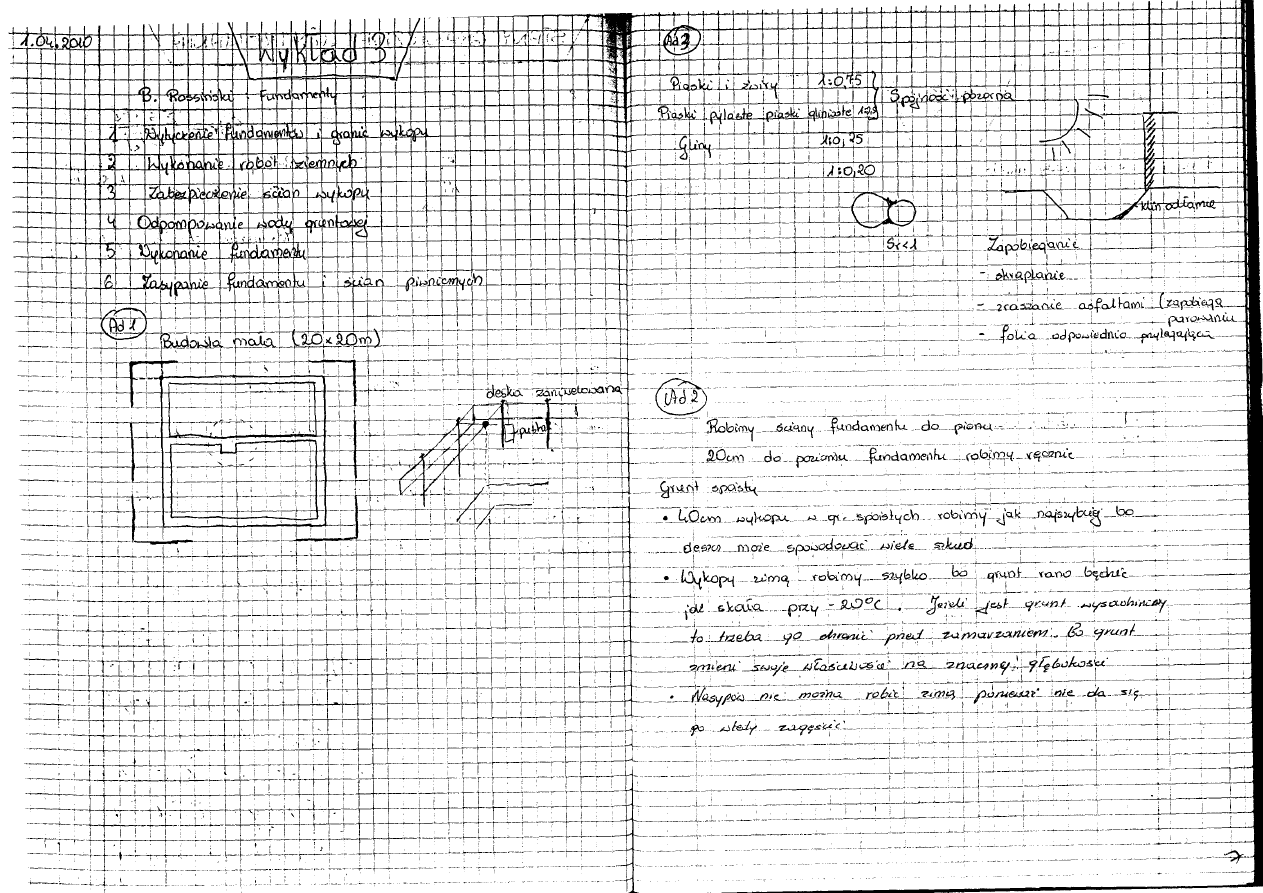 1.04.2010
Wykład 3
B. Rossiński : Fundamenty
1 Wytyczenie fundamentów i granic wykopu
2 Wykonanie robót ziemnych
3 Zabezpieczenie ścian wykopu
4 Odpompowanie wody gruntowej
5 Wykonanie fundamentu
6 Zasypanie fundamentu i ścian piwnicznych
Ad 1
Budowla mała (20x20m)
deska zaniwelowana
Ad 3
Piaski i żwiry 1:0,75
Spójność pozorna
Piaski pylaste piaski gliniaste
Gliny 1:0,25
1:0,20
Sr<1
klin odłamu
Zapobieganie
- skraplanie
- zraszanie asfaltami (zapobiega
parowaniu
- folia odpowiednio przylegająca
Ad 2
Robimy ściany fundamentu do pionu
20cm do poziomu fundamentu robimy ręcznie
Grunt spoisty
• 40cm wykopu w gr. spoistych robimy jak najszybciej bo
deszcz może spowodować wiele szkód
• Wykopy zimą robimy szybko bo grunt rano będzie
jak skała przy -20°C. Jeżeli jest grunt wysadzinowy
to trzeba go chronić przed zamarzaniem. Bo grunt
zmieni swoje właściwości na znacznej głębokości
• Nasypów nie można robić zimą ponieważ nie da się
go wtedy zagęścić
7